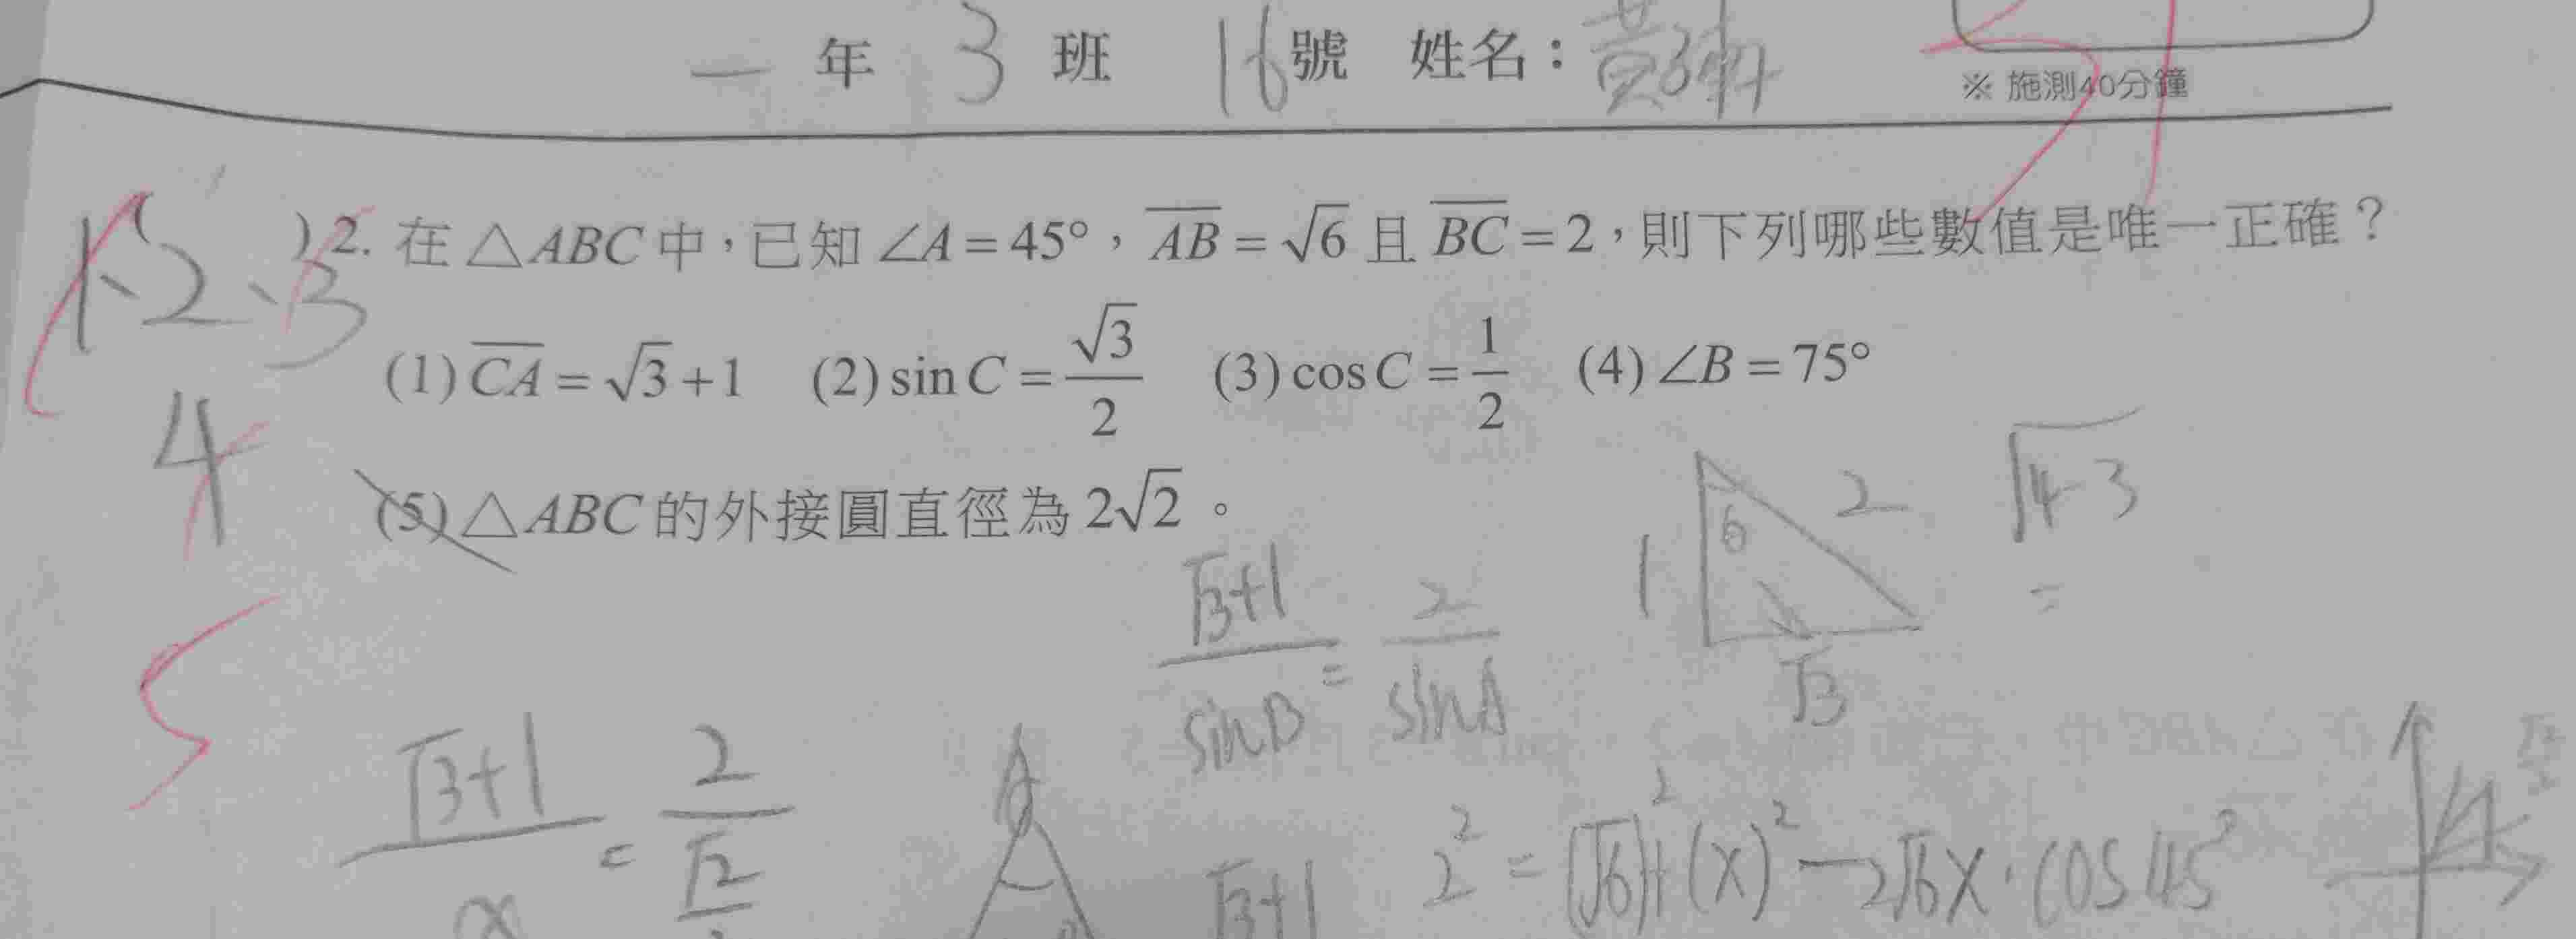 一 年 3 班 16 號 姓名：黃
※ 施測40分鐘
1、2、3
4
5
) 2. 在 △ABC 中，已知 ∠A = 45°，AB = √6 且 BC = 2，則下列哪些數值是唯一正確？
(1) CA = √3 + 1 (2) sin C = √3/2 (3) cos C = 1/2 (4) ∠B = 75°
(5) △ABC 的外接圓直徑為 2√2 。
1 6 2 √3 √4-3 =
√3+1/sinB = 2/sinA
√3+1/x = 2/√2
A
√3+1
2² = (√6)² + (x)² - 2√6x · cos45°